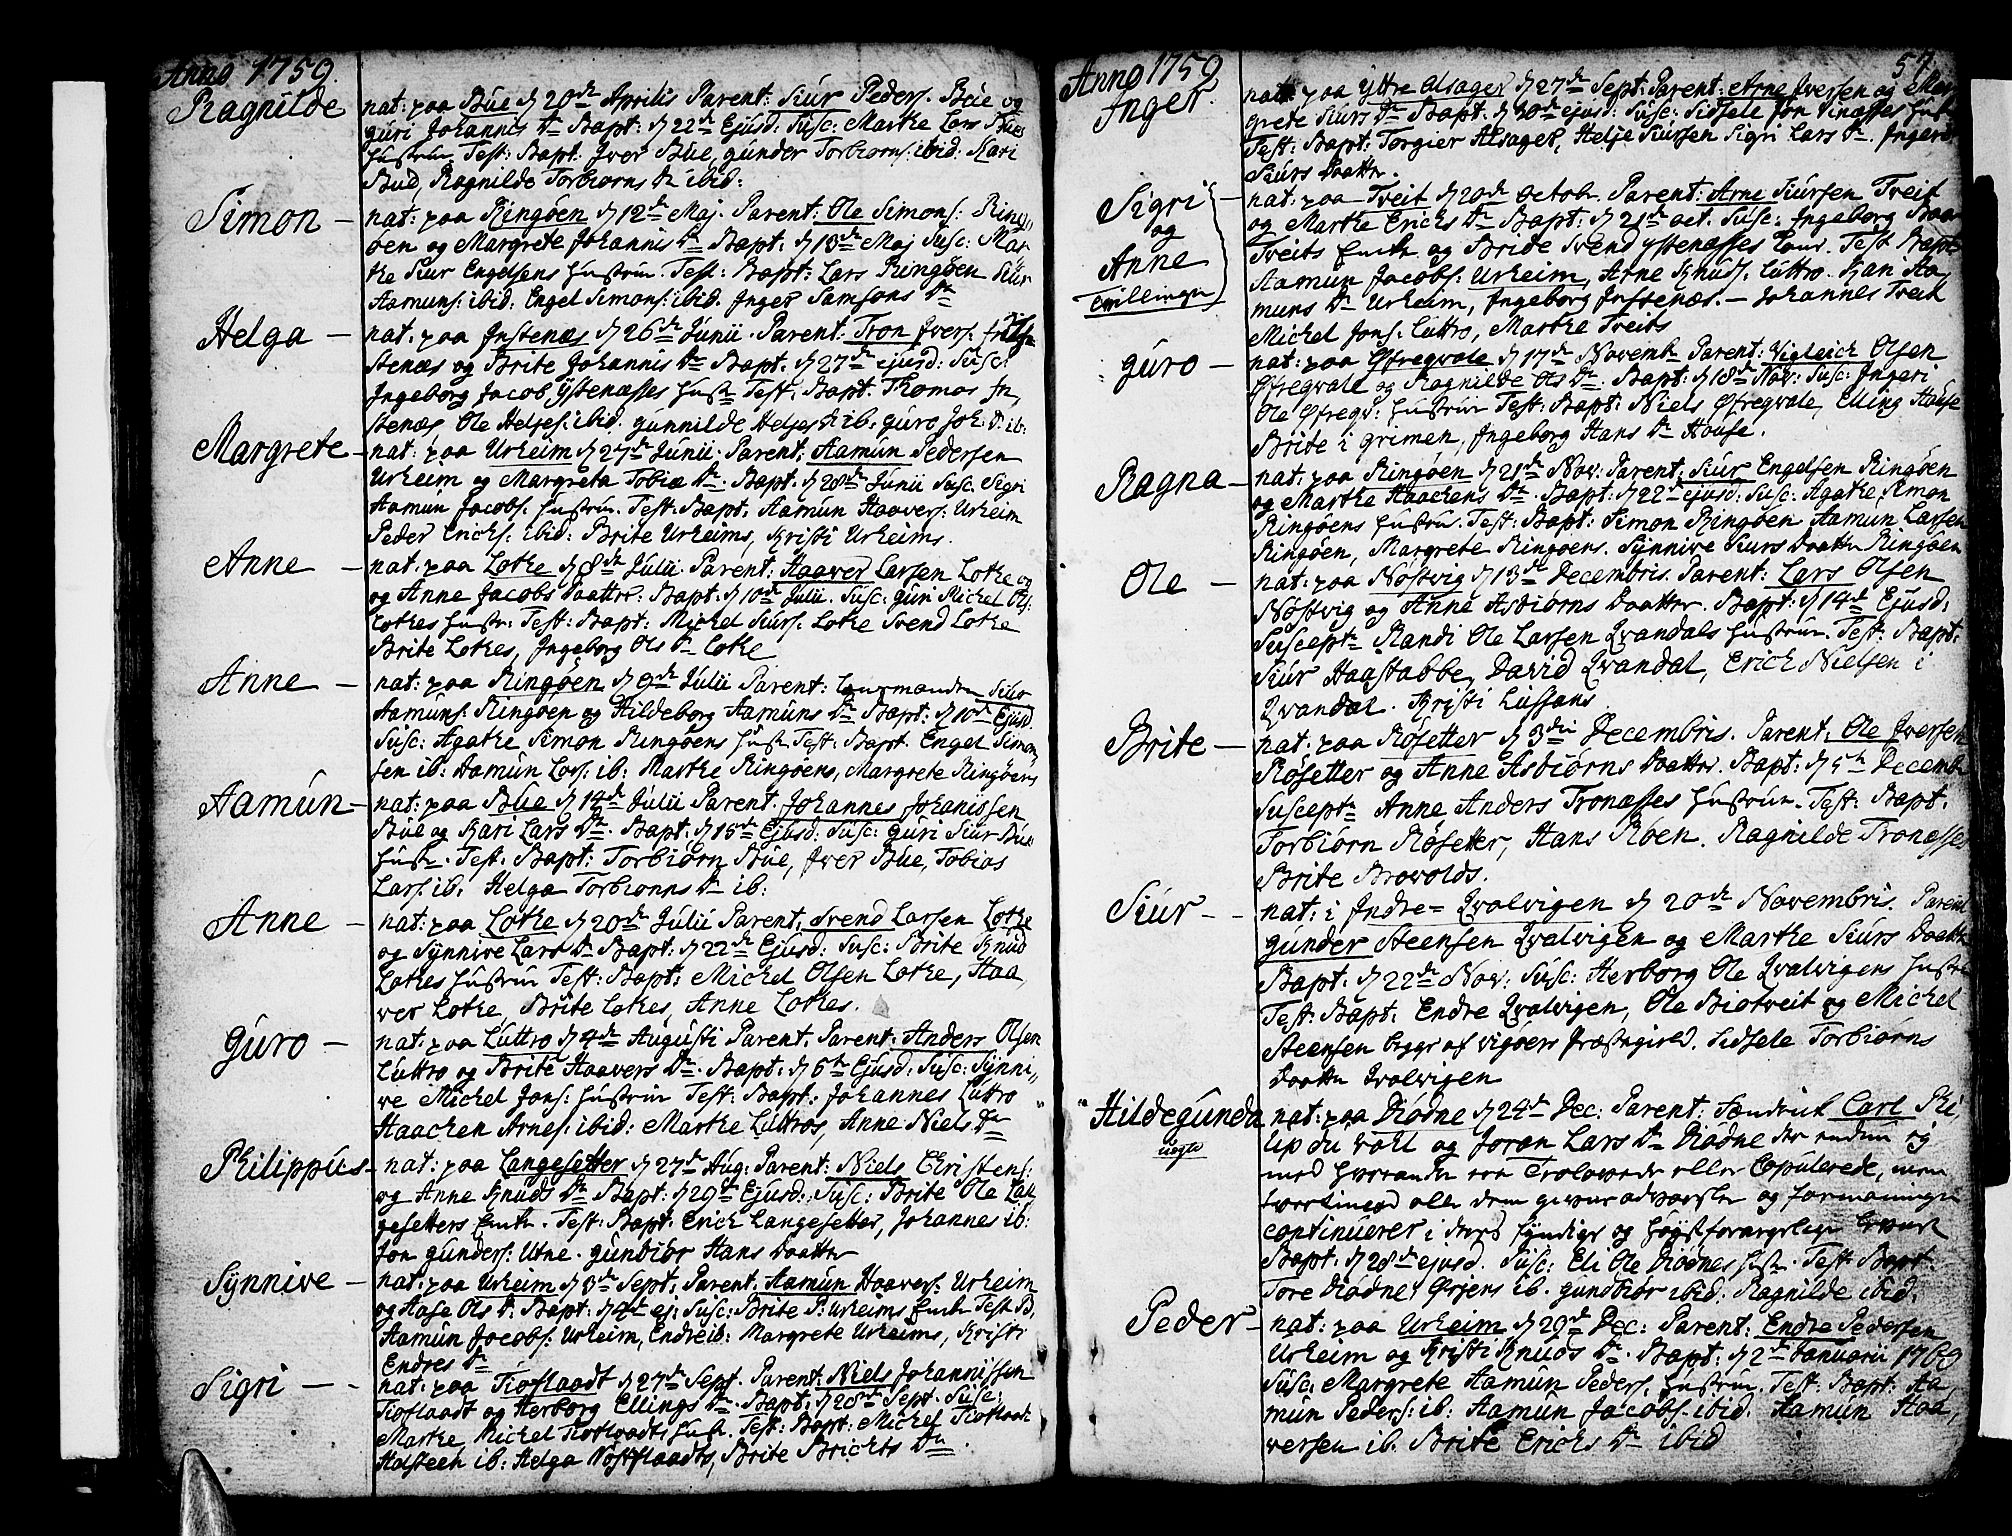 Anno 1759.
Ragnilde
nat: paa Büe d 20de Aprilis Parent: Siur Peders. Büe og
guri Johannis Dr Bapt: d 22de Ejusd: Susc: Marthe Lars Bües
Hustrue Test: Bapt: Iver Büe, gunder Torbiorns: ibid: Kari
Bud, Ragnilde Torbiorns Dr ibid:
Simon –
nat: paa Ringøen d 12de Maj. Parent: Ole Simons: Ring„
øen og Margrete Johannis Dr Bapt: d 13de Maj Susc: Mar
the Siur Engelsens Hustrue. Test: Bapt: Lars Ringøen Siur
Aamuns: ibid: Engel Simons: ibid. Inger Samsons Dr
Helga –
nat: paa Instenæs d 26de Junii. Parent: Tron Ivers:
stenæs og Brite Johannis Dr Bapt: d 27de ejusd: Susc:
Ingeborg Jacob Ystenæsses Hustr Test: Bapt. Thomas In,
stenæs Ole Heljes: ibid. gunnilde Heljes D ib: guro Joh: D ib:
Margrete –
nat: paa Urheim d 27de Junii. Parent: Aamun Pedersen
Urheim og Margreta Tobiæ Dr. Bapt: d 28de Junii Susc: Sigri
Aamun Jacobs: Hustrue. Test: Bapt: Aamun Haavers: Urheim
Peder Erichs: ibid: Brite Urheims, Kristi Urheims.
Anne –
nat: paa Lothe d 8de Julii Parent: Haaver Larsen Lothe og
og Anne Jacobs Daatter: Bapt: d 10de Julii. Susc: Guri Michel Ols:
Lothes Hustr: Test: Bapt: Michel Siurs: Lothe Svend Lothe
Brite Lothes, Ingeborg Ols Dr Lothe
Anne –
nat: paa Ringøen d 9de Julii Parent:
Aamuns: Ringøen og Hildeborg Aamuns Dr Bapt: d 10de Ejusd
Susc: Agathe Simon Ringøens Hustr Test: Bapt. Engel Simon
sen ib: Aamun Lars: ib: Marthe Ringøens, Margrete Ringøens
Aamun –
nat: paa Büe d 14de Julii Parent: Johannes Johanissen
Büe og Kari Lars Dr. Bapt: d 15de Ejusd: Susc: Guri Siur Bües
Hustr. Test: Bapt: Torbiørn Büe, Iver Büe, Tobias
Lars: ib. Helga Torbionns Dr ib:
Anne –
nat: paa Lothe d 20de Julii Parent: Svend Larsen Lothe
og Synnive Lars Dr Bapt: d 22de Ejusd: Susc: Brite Knud
Lothes Hustrue Test: Bapt: Michel Olsen Lothe, Haa
ver Lothe, Brite Lothes, Anne Lothes.
Guro –
nat: paa Luttro d 4de Augusti Parent: Parent: Anders Olsen
Luttro og Brite Haavers Dr. Bapt: d 6te Ejusd: Susc: Synni„
ve Michel Jons: Hustrue Test: Bapt: Johannes Luttro
Haachen Arnes: ibid: Marthe Luttros, Anne Niels Dr
Philippus –
nat: paa Langesetter d 27de Aug: Parent: Niels Christens:
og Anne Knuds Dr Bapt: d 29de Ejusd: Susc: Brite Ole Lan
gesetters Enke. Test: Bapt: Erich Langesetter, Johannes ib:
Jon Gunders: Utne. Gundiør Hans Daatter
Synnive –
nat: paa Urheim d 3de Sept. Parent: Aamun Haavers: Urheim
og Aase Ols D. Bapt: d 4de ej: Susc: Brite P: Urheims Enke Test B.
Aamun Jacobs: Urheim, Endre ib: Margrete Urheims, Kristi
Endres Dr
Sigri – –
nat: paa Tioflaadt d 27de Sept. Parent: Niels Johannissen
Tioflaadt og Herborg Ellings Dr. Bapt: d 28de Sept. Susc:
Marthe Michel Tioflaadts Hustr. Test: Bapt: Michel Tioflaadt
Halsteen ib: Helga Nestflaadts, Brite Brichts Dr.
Anno 1759.
57.
Inger.
nat: paa Yttre Alsager d 27de Sept: Parent: Arne Iversen og Mar
grete Siurs Dr Bapt: d 30de ejusd: Susc: Sidsele Jon Vinæsses Hustr
Test: Bapt: Torgier Alsager, Helje Siursen Sigri Lars Dr. Ingerd
Siurs Daatter.
Sigri
og
Anne
Tvillinger
nat: paa Tveit d 20de Octob. Parent: Arne Siursen Tveit
og Marthe Erichs Dr Bapt: d 21de oct. Susc: Ingeborg Baar
Tveits Enke og Bride Svend Ystenæsses Test: Bapt:
Aamun Jacobs: Urheim, Arne Knuds: Luttro. Kari Aa,
muns Dr Urheim, Ingeborg Instenæs. – Johannes Tveit
Michel Jons: Luttro, Marthe Tveits
Guro –
nat: paa Øfregvale d 17de Novemb. Parent: Vigleich Olsen
Øfregvale og Ragnilde Ols Dr. Bapt: d 18de Nov: Susc: Ingeri
Ole Øfregv: Hustrue Test: Bapt: Niels Øfregvale, Elling House
Brite i Grimen, Ingeborg Hans Dr House.
Ragna –
nat: paa Ringøen d 21de Nov: Parent: Siur Engelsen Ringøen
og Marthe Haachens Dr. Bapt: d 22de ejusd: Susc: Agathe Simon
Ringøens Hustrue. Test: Bapt: Simon Ringøen Aamun Larsen
Ringøen, Margrete Ringøens. Synnive Siurs Daatter Ringøen
Ole –
nat: paa Nøstvig d 13de Decembris. Parent: Lars Olsen
Nøstvig og Anne Asbiørns Daatter. Bapt: d 14de Ejusd:
Suscept: Randi Ole Larsen Qvandals Hustrue. Test: Bapt:
Siur Haastabbe, David Qvandal, Erich Nielsen i
Qvandal. Kristi Lussans
Brite –
nat: paa Røsetter d 3die Decembris. Parent: Ole Iversen
Røsetter og Anne Asbiørns Daatter. Bapt: d 5te Decemb:
Suscept: Anne Anders Tronæsses Hustrue. Test: Bapt.
Torbiørn Røsetter, Hans Røen. Ragnilde Tronæsses
Brite Brovolds.
Siur – –
nat: i Indre= Qvalvigen d 20de Novembris. Parent
Gunder Steensen Qvalvigen og Marthe Siurs Daatter
Bapt: d 22de Nov: Susc: Herborg Ole Qvalvigens Hustr.
Test: Bapt: Endre Qvalvigen, Ole Biotveit og Michel
Steensen begge af Vigøers Præstegield. Sidsele Torbiørns
Daatter Qvalvigen
Hildegunda
uægte
nat: paa Diødne d 24de Dec: Parent: Carl Phi,
lip du Vahl og Joran Lars Dr Diødne
med Trolovede eller Copulerede, men
og formaninger
continuerer i deres syndige og høyst forargelige
Bapt: d 28de ejusd. Susc: Eli Ole Diødnes Hustr. Test: Bapt:
Tore Diødne, Ørjens ib. Gundbiør ibid. Ragnilde ibid.
Peder –
nat: paa Urheim d 29de Dec: Parent: Endre Pedersen
Urheim og Kristi Knuds Dr. Bapt: d 2de Januarii 1760
Susc: Margrete Aamun Peders: Hustrue. Test: Bapt: Aa,
mun Peders: ib: Aamun Jacobs: ibid: Aamun Haa,
versen ib. Brite Erichs Dr ibid